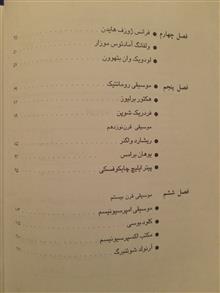 فصل چهارم
● فرانس ژوزف هایدن
● ولفانگ آمادئوس موزار
● لودویک وان بتهوون
فصل پنجم
● موسیقی رومانتیک
● هکتور برلیوز
● فردریک شوپن
موسیقی قرن نوزدهم
● ریشارد واگنر
● یوهان برامس
● پیتر ایلیچ چایکوفسکی
فصل ششم
موسیقی قرن بیستم
● موسیقی امپرسیونیسم
● کلود بوسی
● مکتب اکسپرسیونیسم
● آرنولد شوئنبرگ